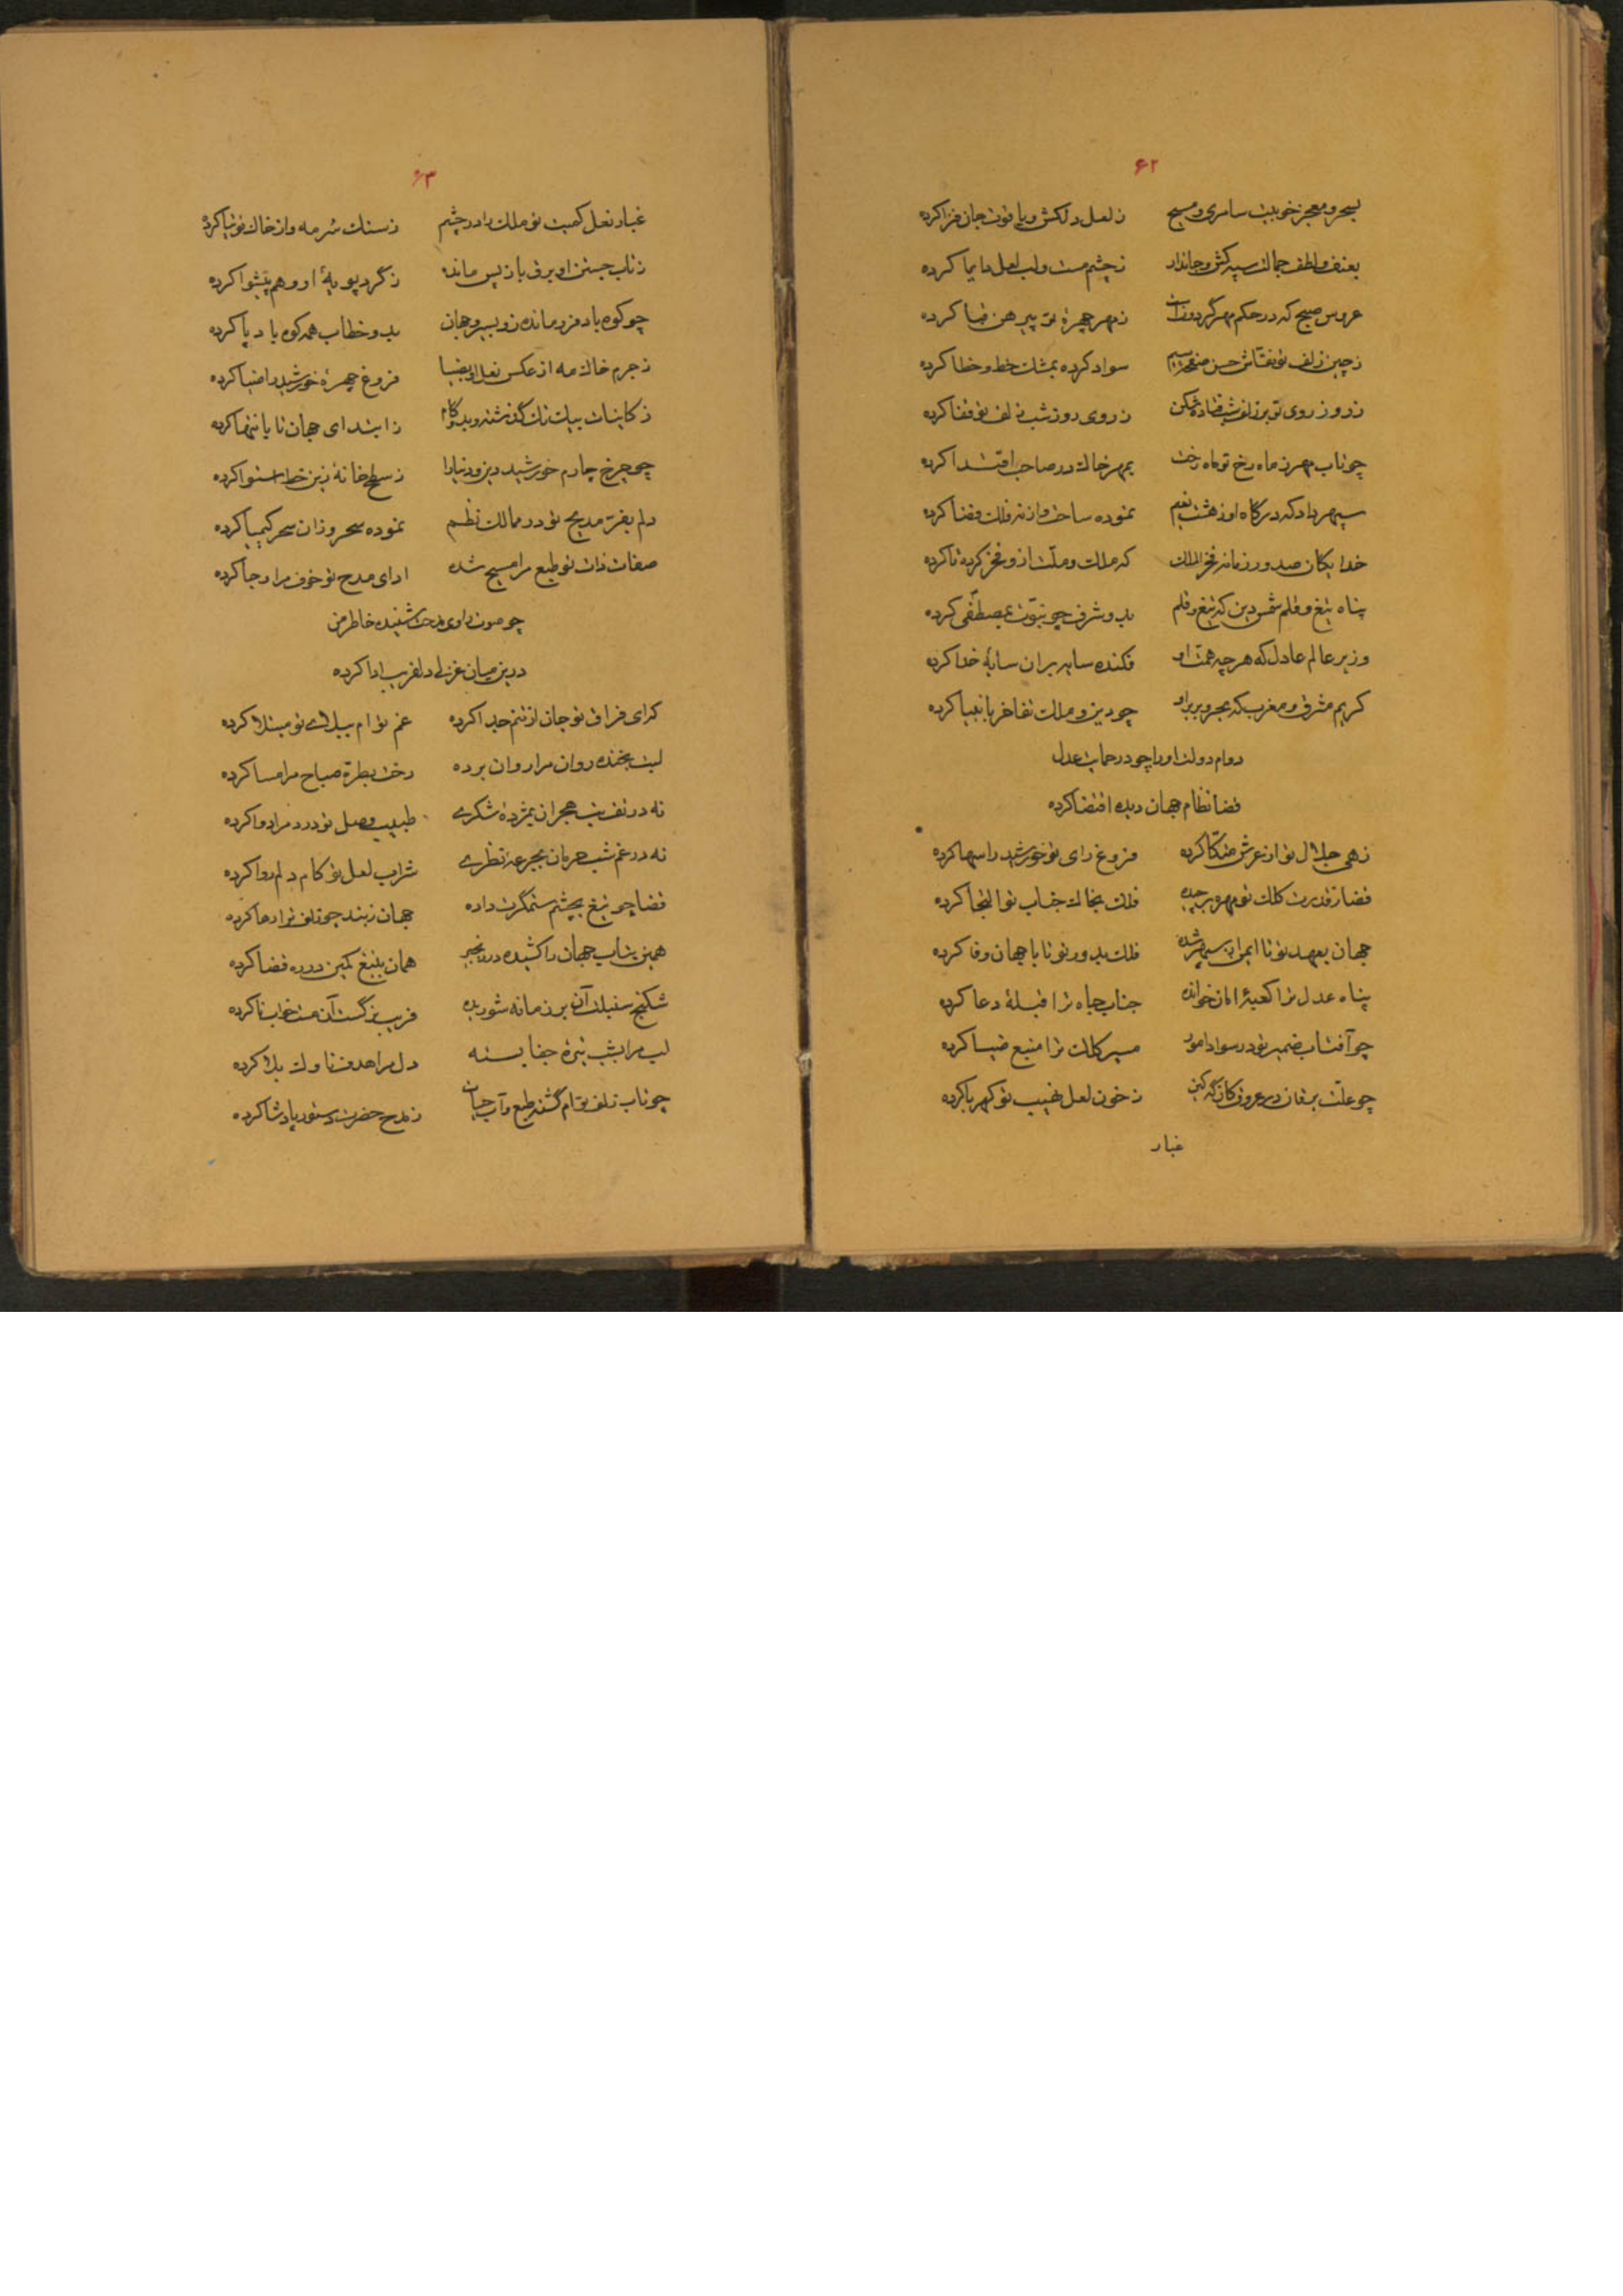 ۶۲
بسحر و معجز خوبیت سامری و مسیح ز لعل دلکش و یاقوت جان فزا کرده
بعنف و لطف جمالت سپه کش و جاندار ز چشم مست و لب لعل دایما کرده
عروس صبح که در حکم مهر گردونست ز مهر چهرهٔ تو پیرهن قبا کرده
ز چین زلف تو نقاش حسن سواد کرده بمشک خط و خطا کرده
ز روز روی تو بر زلف شب فتاده شکن ز روی روز شب زلف تو قفا کرده
چو تاب مهر ز ماه رخ تو ماه رخت بمهر خاک در صاحب اقتدا کرده
سپهر داد که درگاه او ز هشت نعیم نموده ساحت و از نه فلک فضا کرده
خدایکان صدور زمانه فخر الملک که ملک و ملت ازو فخر کرده تا کرده
پناه تیغ و قلم شمس دین که تیغ و قلم بدو شرف چو نبوّت بمصطفی کرده
وزیر عالم عادل که هر چه همت او فکنده سایه بران سایهٔ خدا کرده
کریم مشرق و مغرب که بحر و بر براو چو دین و ملک تفاخر بانبیا کرده
دوام دولت او را چو در حمایت عدل
قضا نظام جهان دیده اقتضا کرده
زهی جلال تو از عرش متّکا کرده فروغ رای تو خورشید را سها کرده
قضا ز قدرت کلک تو مهره برچیده فلک بخاک جناب تو التجا کرده
جهان بعهد تو تا ایمن از سپهر شده فلک بدور تو تا با جهان وفا کرده
پناه عدل ترا کعبهٔ امان خوانده جناب جاه ترا قبلهٔ دعا کرده
چو آفتاب ضمیر تو در سواد امور مسیر کلک ترا منبع ضیا کرده
چو علّت یرقان در عروق کان که کین ز خون لعل نهیب تو کهربا کرده
غبار
۶۳
غبار نعل کمیت تو ملک را در چشم ز سنک سُرمه و از خاک توتیا کرده
ز تاب جستن او برق باز پس مانده ز گرد پویهٔ او وهم پیشوا کرده
چو کوه باد فرو مانده زو بسیر و جهان بدو خطاب همه کوه باد پا کرده
ز جرم خاک مه از عکس نعل او بضیا فروغ چهرهٔ خورشید را ضیا کرده
ز کاینات بیک تک گذشته و بدو گام ز ابتدای جهان تا بانتها کرده
چو چرخ چارم خورشید دین و دنیا را ز سطح خانهٔ زین خط استوا کرده
دلم بفرّ مدیح تو در ممالک نظم نموده سحر و زان سحر کیمیا کرده
صفات ذات تو طبع مرا مسیح شده ادای مدح تو خوف مرا رجا کرده
چو صوت راوی مدحت شنیده خاطر من
درین میان غزلی دلفریب ادا کرده
که ای فراق تو جان از تنم جدا کرده غم توام ببلای تو مبتلا کرده
لبت بخنده روان مرا روان برده رخت بطرّه صباح مرا مسا کرده
نه در تف تب هجران بمژدهٔ شکری طبیب وصل تو درد مرا دوا کرده
نه در غم شب حرمان بجرعهٔ نظری شراب لعل تو کام دلم روا کرده
قضا چو تیغ بچشم ستمگرت داده جهان ز بند چو زلف ترا رها کرده
همین بتاب جهان را کشیده در زنجیر همان بتیغ کمین در ره قضا کرده
شکنج سنبلت آن بر زمانه شوریده فریب نرگست آن مست خواب نا کرده
لب مرا بشب تیرهٔ جفا بسته دل مرا هدف ناوک بلا کرده
چو تاب زلف توام گشته طبع و آب حیات ز مدح حضرت دستور پادشا کرده